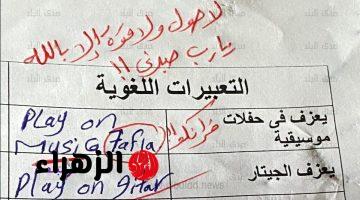 لاحول ولا قوة إلا بالله
يارب صبرنى !!
التعبيرات اللغوية
يعزف فى حفلات موسيقية
Play on
Musig (Tafla
فرانكو!!
الزهراء
يعزف الجيتار
Play on gitar
صدى البلد